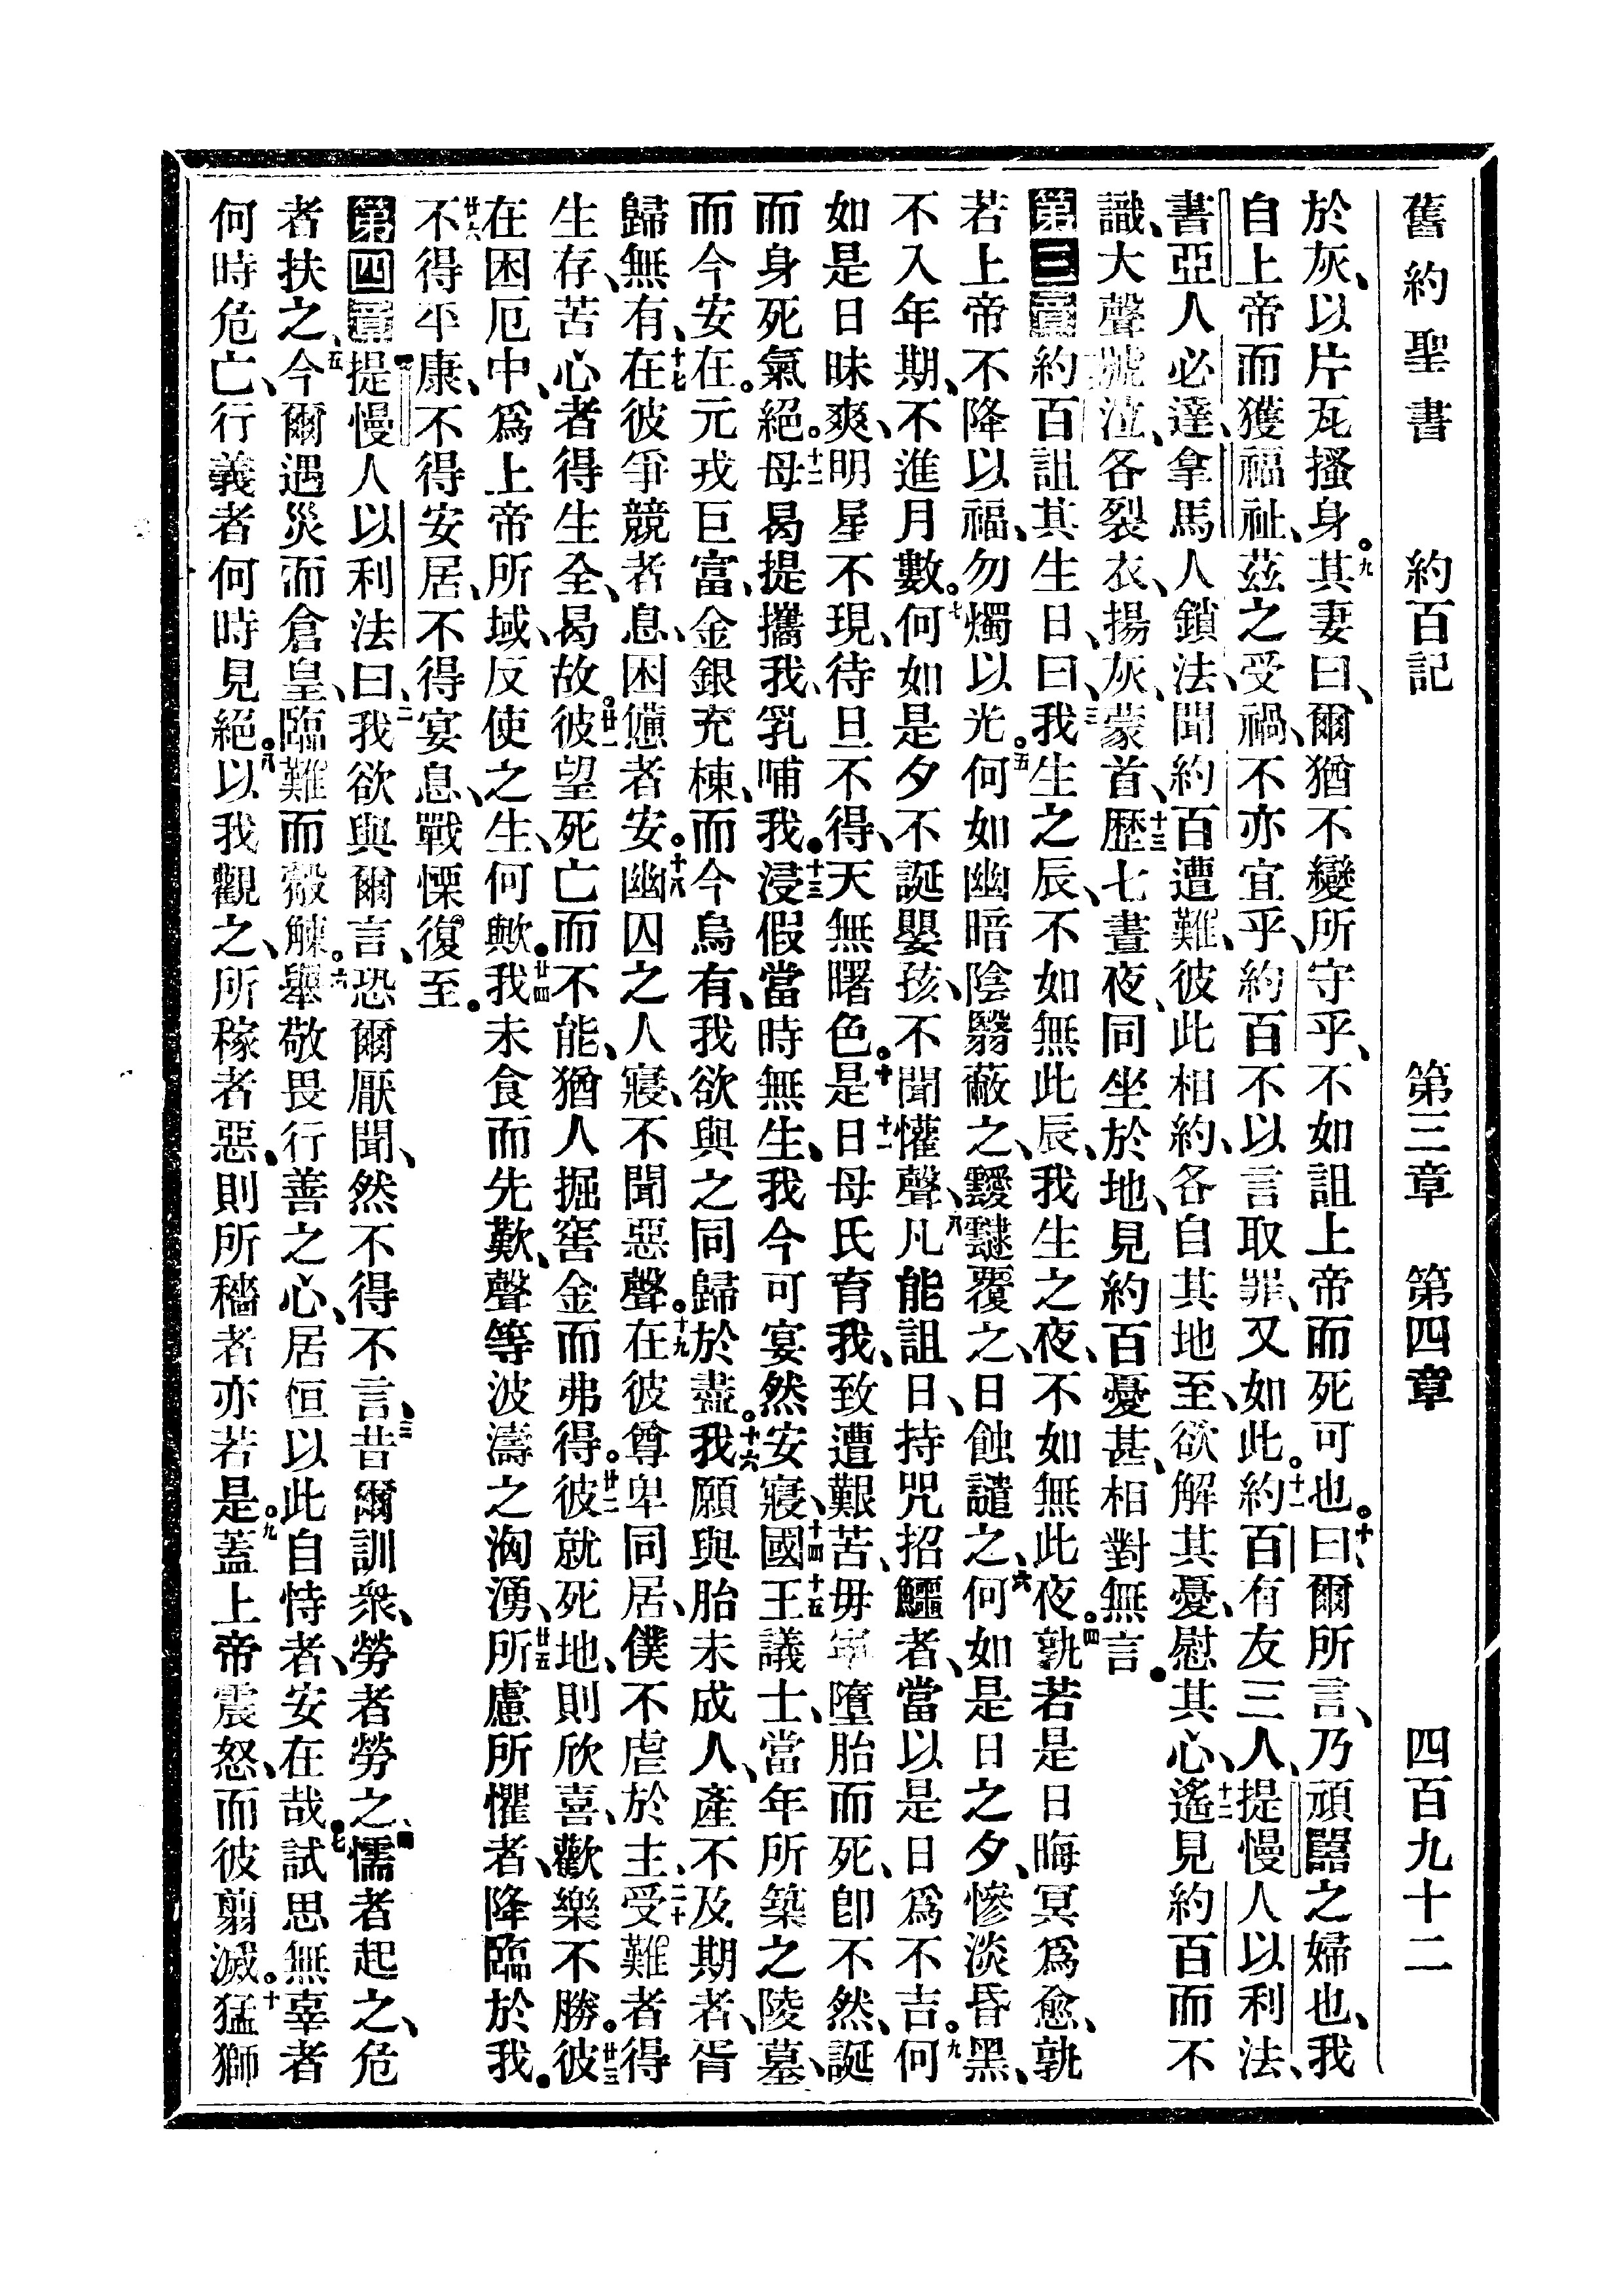 舊約聖書 約百記 第三章 第四章 四百九十二
於灰、以片瓦搔身。九其妻曰、爾猶不變所守乎、不如詛上帝而死可也。十曰、爾所言、乃頑嚚之婦也、我
自上帝而獲福祉、茲之受禍、不亦宜乎、約百不以言取罪、又如此。十一約百有友三人、提慢人以利法、
書亞人必達、拿馬人鎖法、聞約百遭難、彼此相約、各自其地至、欲解其憂、慰其心、十二遙見約百而不
識、大聲號泣、各裂衣、揚灰、蒙首、十三歷七晝夜、同坐於地、見約百憂甚、相對無言。
第三章約百詛其生日、曰、三我生之辰、不如無此辰、我生之夜、不如無此夜。四孰若是日晦冥爲愈、孰
若上帝不降以福、勿燭以光。五何如幽暗陰翳蔽之、靉靆覆之、日蝕譴之、六何如是日之夕、慘淡昏黑、
不入年期、不進月數。七何如是夕不誕嬰孩、不聞懽聲、八凡能詛日、持咒招鱷者、當以是日爲不吉。九何
如是日昧爽、明星不現、待旦不得、天無曙色。十是日十一母氏育我、致遭艱苦、毋寧墮胎而死、卽不然、誕
而身死氣絕。十二母曷提攜我、乳哺我。十三浸假當時無生、我今可宴然安寢、十四國十五王議士、當年所築之陵墓、
而今安在。元戎巨富、金銀充棟、而今烏有、我欲與之同歸於盡。十六我願與胎未成人、產不及期者、胥
歸無有、十七在彼爭競者息、困憊者安。十八幽囚之人寢、不聞惡聲。十九在彼尊卑同居、僕不虐於主、二十受難者得
生存、苦心者得生全、曷故。廿一彼望死亡而不能、猶人掘窖金而弗得。廿二彼就死地、則欣喜、歡樂不勝。廿三彼
在困厄中、爲上帝所域、反使之生、何歟。廿四我未食而先歎、聲等波濤之洶湧、廿五所慮所懼者、降臨於我。
廿六不得平康、不得安居、不得宴息、戰慄復至。
第四章一提慢人以利法曰、二我欲與爾言、恐爾厭聞、然不得不言、三昔爾訓衆、勞者勞之、四懦者起之、危
者扶之、五今爾遇災而倉皇、臨難而觳觫。六舉敬畏行善之心、居恒以此自恃者、安在哉、七試思無辜者
何時危亡、行義者何時見絕。八以我觀之、所稼者惡、則所穡者亦若是。九蓋上帝震怒、而彼翦滅。十猛獅